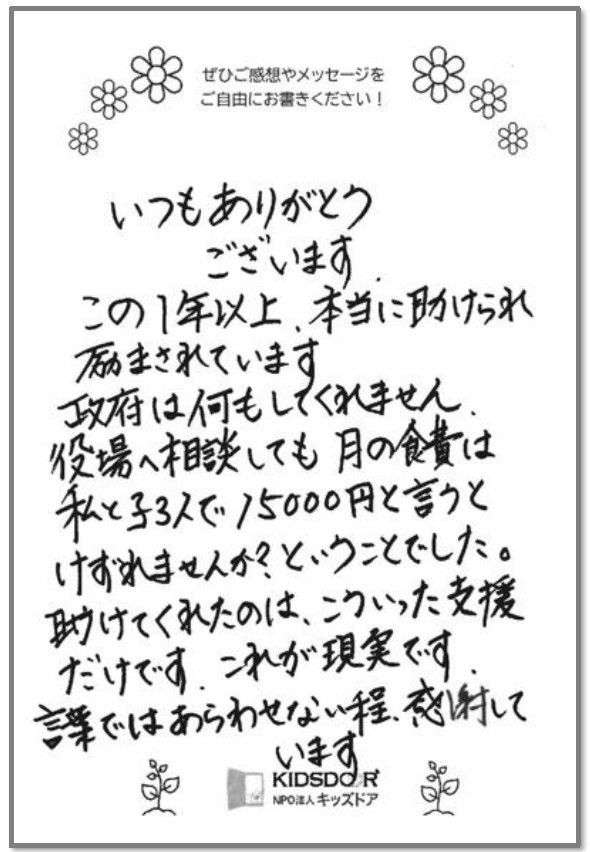 ぜひご感想やメッセージを
ご自由にお書きください！
いつもありがとう
ございます.
この1年以上、本当に助けられ
励まされています
政府は何もしてくれません.
役場へ相談しても月の食費は
私と子3人で15000円と言うと
けずれませんか?ということでした。
助けてくれたのは、こういった支援
だけです.これが現実です.
言葉ではあらわせない程、感謝して
います
KIDSDOOR
NPO法人 キッズドア